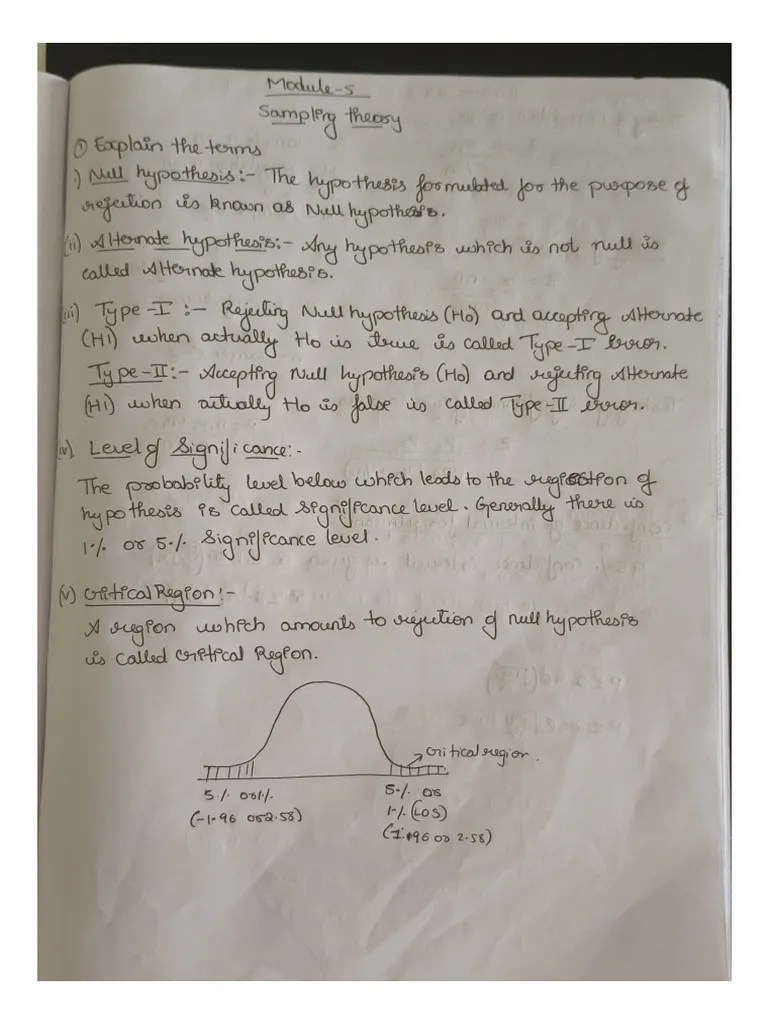 Module-5
Sampling theory
① Explain the terms
i) Null hypothesis:- The hypothesis formulated for the purpose of
rejection is known as Null hypothesis.
(ii) Alternate hypothesis:- Any hypothesis which is not null is
called Alternate hypothesis.
iii) Type-I :- Rejecting Null hypothesis (H0) and accepting Alternate
(H1) when actually H0 is true is called Type-I Error.
Type-II:- Accepting Null hypothesis (H0) and rejecting Alternate
(H1) when actually H0 is false is called Type-II error.
iv) Level of Significance:-
The probability level below which leads to the rejection of
hypothesis is called significance level. Generally there is
1% or 5% Significance level.
(v) Critical Region:-
A region which amounts to rejection of null hypothesis
is called Critical Region.
Critical region.
5% or 1%
(-1.96 or 2.58)
5% or
1% (LOS)
(1.96 or 2.58)